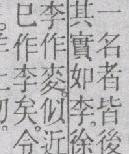 一名者皆後
其實如李徐
李作似近
巳作李矣分